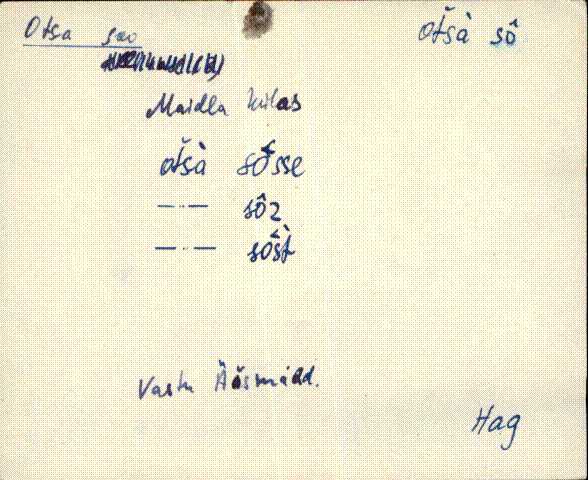 Otsa soo otšà sô
Maidla külas
otšà sô̆sse
—·— sôz
—·— sôšt̀
Vastu Ääsmäed.
Hag